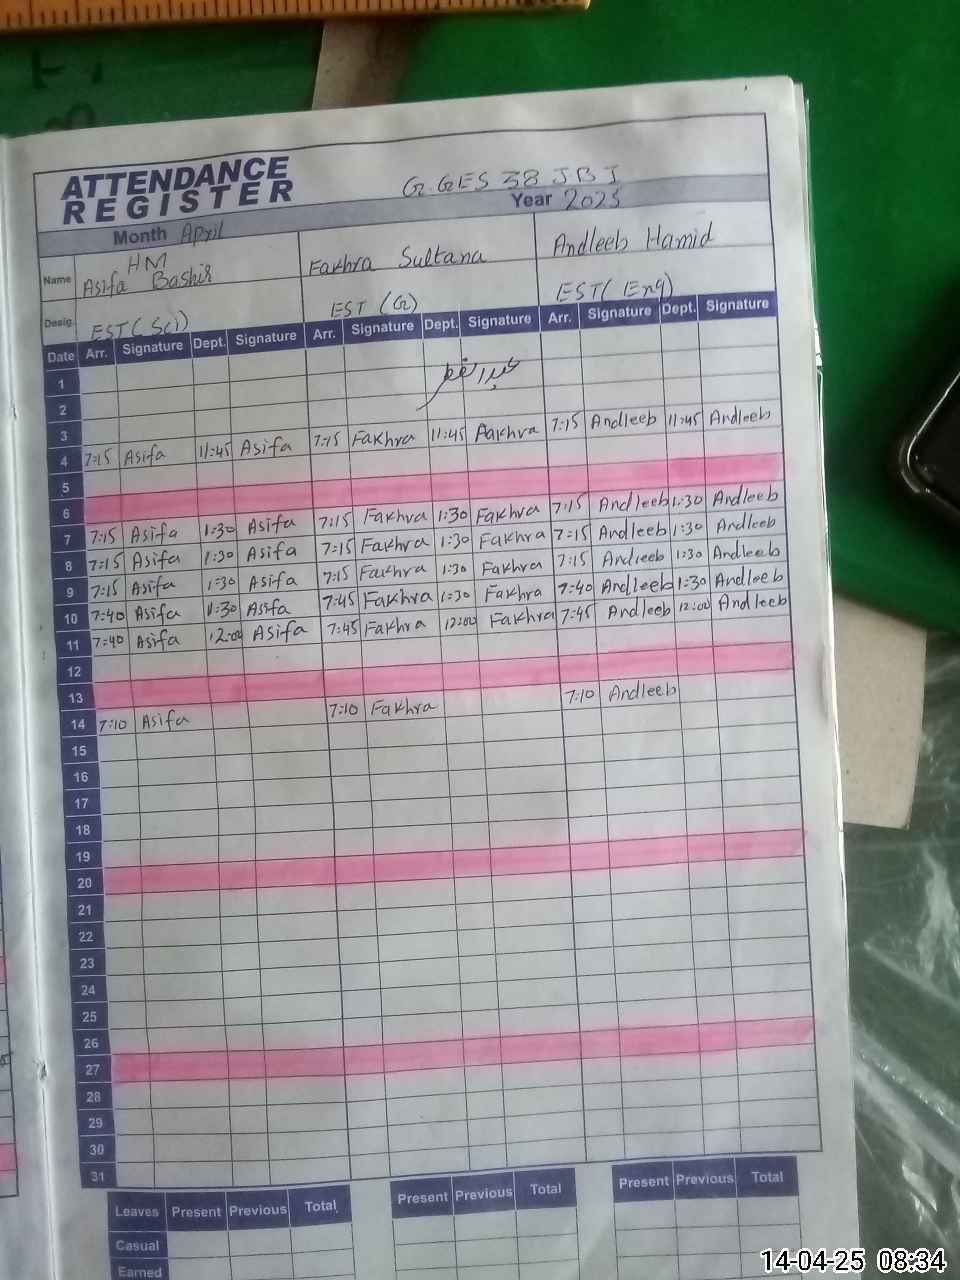 ATTENDANCE
REGISTER
G.GES 38 JBI
Year 2025
Month April
Name HM Asifa Bashir Fakhra Sultana Andleeb Hamid
Desig. EST (Sci) EST (G) EST (Eng)
Date Arr. Signature Dept. Signature Arr. Signature Dept. Signature Arr. Signature Dept. Signature
1
عیدالفطر
2
3
4 7:15 Asifa 11:45 Asifa 7:15 Fakhra 11:45 Fakhra 7:15 Andleeb 11:45 Andleeb
5
6
7 7:15 Asifa 1:30 Asifa 7:15 Fakhra 1:30 Fakhra 7:15 Andleeb 1:30 Andleeb
8 7:15 Asifa 1:30 Asifa 7:15 Fakhra 1:30 Fakhra 7:15 Andleeb 1:30 Andleeb
9 7:15 Asifa 1:30 Asifa 7:15 Fakhra 1:30 Fakhra 7:15 Andleeb 1:30 Andleeb
10 7:40 Asifa 1:30 Asifa 7:45 Fakhra 1:30 Fakhra 7:40 Andleeb 1:30 Andleeb
11 7:40 Asifa 12:00 Asifa 7:45 Fakhra 12:00 Fakhra 7:45 Andleeb 12:00 Andleeb
12
13
14 7:10 Asifa 7:10 Fakhra 7:10 Andleeb
15
16
17
18
19
20
21
22
23
24
25
26
27
28
29
30
31
Leaves Present Previous Total Present Previous Total Present Previous Total
Casual
Earned
14-04-25 08:34